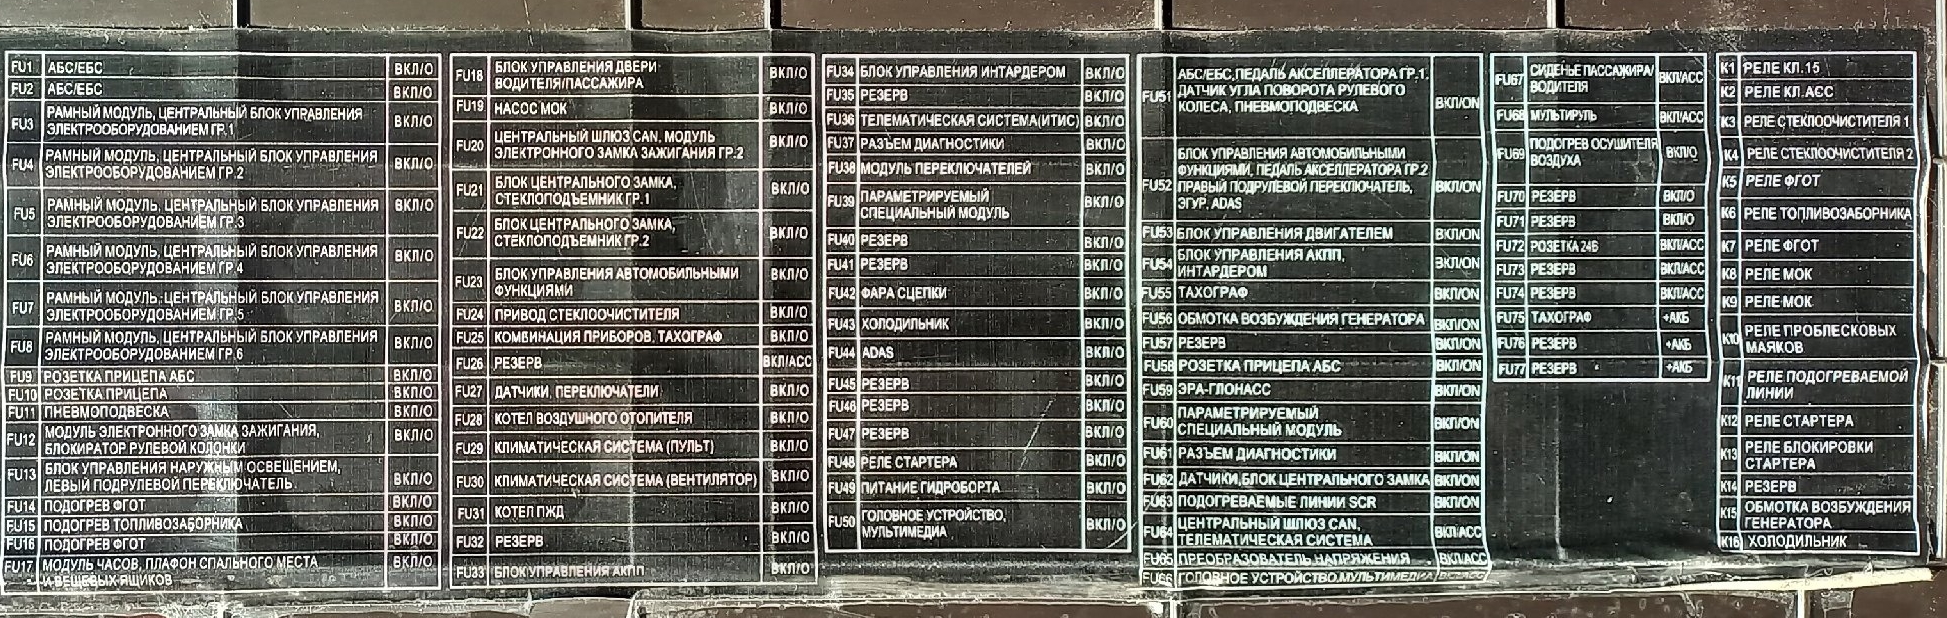 FU1 АБС/ЕБС ВКЛ/О
FU2 АБС/ЕБС ВКЛ/О
FU3 РАМНЫЙ МОДУЛЬ, ЦЕНТРАЛЬНЫЙ БЛОК УПРАВЛЕНИЯ ВКЛ/О
ЭЛЕКТРООБОРУДОВАНИЕМ ГР.1
FU4 РАМНЫЙ МОДУЛЬ, ЦЕНТРАЛЬНЫЙ БЛОК УПРАВЛЕНИЯ ВКЛ/О
ЭЛЕКТРООБОРУДОВАНИЕМ ГР.2
FU5 РАМНЫЙ МОДУЛЬ, ЦЕНТРАЛЬНЫЙ БЛОК УПРАВЛЕНИЯ ВКЛ/О
ЭЛЕКТРООБОРУДОВАНИЕМ ГР.3
FU6 РАМНЫЙ МОДУЛЬ, ЦЕНТРАЛЬНЫЙ БЛОК УПРАВЛЕНИЯ ВКЛ/О
ЭЛЕКТРООБОРУДОВАНИЕМ ГР.4
FU7 РАМНЫЙ МОДУЛЬ, ЦЕНТРАЛЬНЫЙ БЛОК УПРАВЛЕНИЯ ВКЛ/О
ЭЛЕКТРООБОРУДОВАНИЕМ ГР.5
FU8 РАМНЫЙ МОДУЛЬ, ЦЕНТРАЛЬНЫЙ БЛОК УПРАВЛЕНИЯ ВКЛ/О
ЭЛЕКТРООБОРУДОВАНИЕМ ГР.6
FU9 РОЗЕТКА ПРИЦЕПА АБС ВКЛ/О
FU10 РОЗЕТКА ПРИЦЕПА ВКЛ/О
FU11 ПНЕВМОПОДВЕСКА ВКЛ/О
FU12 МОДУЛЬ ЭЛЕКТРОННОГО ЗАМКА ЗАЖИГАНИЯ, ВКЛ/О
БЛОКИРАТОР РУЛЕВОЙ КОЛОНКИ
FU13 БЛОК УПРАВЛЕНИЯ НАРУЖНЫМ ОСВЕЩЕНИЕМ, ВКЛ/О
ЛЕВЫЙ ПОДРУЛЕВОЙ ПЕРЕКЛЮЧАТЕЛЬ
FU14 ПОДОГРЕВ ФГОТ ВКЛ/О
FU15 ПОДОГРЕВ ТОПЛИВОЗАБОРНИКА ВКЛ/О
FU16 ПОДОГРЕВ ФГОТ ВКЛ/О
FU17 МОДУЛЬ ЧАСОВ, ПЛАФОН СПАЛЬНОГО МЕСТА ВКЛ/О
И ВЕЩЕВЫХ ЯЩИКОВ
FU18 БЛОК УПРАВЛЕНИЯ ДВЕРИ ВКЛ/О
ВОДИТЕЛЯ/ПАССАЖИРА
FU19 НАСОС МОК ВКЛ/О
FU20 ЦЕНТРАЛЬНЫЙ ШЛЮЗ CAN, МОДУЛЬ ВКЛ/О
ЭЛЕКТРОННОГО ЗАМКА ЗАЖИГАНИЯ ГР.2
FU21 БЛОК ЦЕНТРАЛЬНОГО ЗАМКА, ВКЛ/О
СТЕКЛОПОДЪЕМНИК ГР.1
FU22 БЛОК ЦЕНТРАЛЬНОГО ЗАМКА, ВКЛ/О
СТЕКЛОПОДЪЕМНИК ГР.2
FU23 БЛОК УПРАВЛЕНИЯ АВТОМОБИЛЬНЫМИ ВКЛ/О
ФУНКЦИЯМИ
FU24 ПРИВОД СТЕКЛООЧИСТИТЕЛЯ ВКЛ/О
FU25 КОМБИНАЦИЯ ПРИБОРОВ, ТАХОГРАФ ВКЛ/О
FU26 РЕЗЕРВ ВКЛ/АСС
FU27 ДАТЧИКИ, ПЕРЕКЛЮЧАТЕЛИ ВКЛ/О
FU28 КОТЕЛ ВОЗДУШНОГО ОТОПИТЕЛЯ ВКЛ/О
FU29 КЛИМАТИЧЕСКАЯ СИСТЕМА (ПУЛЬТ) ВКЛ/О
FU30 КЛИМАТИЧЕСКАЯ СИСТЕМА (ВЕНТИЛЯТОР) ВКЛ/О
FU31 КОТЕЛ ПЖД ВКЛ/О
FU32 РЕЗЕРВ ВКЛ/О
FU33 БЛОК УПРАВЛЕНИЯ АКПП ВКЛ/О
FU34 БЛОК УПРАВЛЕНИЯ ИНТАРДЕРОМ ВКЛ/О
FU35 РЕЗЕРВ ВКЛ/О
FU36 ТЕЛЕМАТИЧЕСКАЯ СИСТЕМА(ИТИС) ВКЛ/О
FU37 РАЗЪЕМ ДИАГНОСТИКИ ВКЛ/О
FU38 МОДУЛЬ ПЕРЕКЛЮЧАТЕЛЕЙ ВКЛ/О
FU39 ПАРАМЕТРИРУЕМЫЙ ВКЛ/О
СПЕЦИАЛЬНЫЙ МОДУЛЬ
FU40 РЕЗЕРВ ВКЛ/О
FU41 РЕЗЕРВ ВКЛ/О
FU42 ФАРА СЦЕПКИ ВКЛ/О
FU43 ХОЛОДИЛЬНИК ВКЛ/О
FU44 ADAS ВКЛ/О
FU45 РЕЗЕРВ ВКЛ/О
FU46 РЕЗЕРВ ВКЛ/О
FU47 РЕЗЕРВ ВКЛ/О
FU48 РЕЛЕ СТАРТЕРА ВКЛ/О
FU49 ПИТАНИЕ ГИДРОБОРТА ВКЛ/О
FU50 ГОЛОВНОЕ УСТРОЙСТВО, ВКЛ/О
МУЛЬТИМЕДИА
FU51 АБС/ЕБС,ПЕДАЛЬ АКСЕЛЛЕРАТОРА ГР.1. ВКЛ/ON
ДАТЧИК УГЛА ПОВОРОТА РУЛЕВОГО
КОЛЕСА, ПНЕВМОПОДВЕСКА
FU52 БЛОК УПРАВЛЕНИЯ АВТОМОБИЛЬНЫМИ ВКЛ/ON
ФУНКЦИЯМИ, ПЕДАЛЬ АКСЕЛЛЕРАТОРА ГР.2
ПРАВЫЙ ПОДРУЛЕВОЙ ПЕРЕКЛЮЧАТЕЛЬ,
ЭГУР, ADAS
FU53 БЛОК УПРАВЛЕНИЯ ДВИГАТЕЛЕМ ВКЛ/ON
FU54 БЛОК УПРАВЛЕНИЯ АКПП, ВКЛ/ON
ИНТАРДЕРОМ
FU55 ТАХОГРАФ ВКЛ/ON
FU56 ОБМОТКА ВОЗБУЖДЕНИЯ ГЕНЕРАТОРА ВКЛ/ON
FU57 РЕЗЕРВ ВКЛ/ON
FU58 РОЗЕТКА ПРИЦЕПА АБС ВКЛ/ON
FU59 ЭРА-ГЛОНАСС ВКЛ/ON
FU60 ПАРАМЕТРИРУЕМЫЙ ВКЛ/ON
СПЕЦИАЛЬНЫЙ МОДУЛЬ
FU61 РАЗЪЕМ ДИАГНОСТИКИ ВКЛ/ON
FU62 ДАТЧИКИ,БЛОК ЦЕНТРАЛЬНОГО ЗАМКА ВКЛ/ON
FU63 ПОДОГРЕВАЕМЫЕ ЛИНИИ SCR ВКЛ/ON
FU64 ЦЕНТРАЛЬНЫЙ ШЛЮЗ CAN, ВКЛ/АСС
ТЕЛЕМАТИЧЕСКАЯ СИСТЕМА
FU65 ПРЕОБРАЗОВАТЕЛЬ НАПРЯЖЕНИЯ ВКЛ/АСС
FU66 ГОЛОВНОЕ УСТРОЙСТВО,МУЛЬТИМЕДИА ВКЛ/АСС
FU67 СИДЕНЬЕ ПАССАЖИРА/ ВКЛ/АСС
ВОДИТЕЛЯ
FU68 МУЛЬТИРУЛЬ ВКЛ/АСС
FU69 ПОДОГРЕВ ОСУШИТЕЛЯ ВКЛ/О
ВОЗДУХА
FU70 РЕЗЕРВ ВКЛ/О
FU71 РЕЗЕРВ ВКЛ/О
FU72 РОЗЕТКА 24В ВКЛ/АСС
FU73 РЕЗЕРВ ВКЛ/АСС
FU74 РЕЗЕРВ ВКЛ/АСС
FU75 ТАХОГРАФ +АКБ
FU76 РЕЗЕРВ +АКБ
FU77 РЕЗЕРВ +АКБ
К1 РЕЛЕ КЛ.15
К2 РЕЛЕ КЛ.АСС
К3 РЕЛЕ СТЕКЛООЧИСТИТЕЛЯ 1
К4 РЕЛЕ СТЕКЛООЧИСТИТЕЛЯ 2
К5 РЕЛЕ ФГОТ
К6 РЕЛЕ ТОПЛИВОЗАБОРНИКА
К7 РЕЛЕ ФГОТ
К8 РЕЛЕ МОК
К9 РЕЛЕ МОК
К10 РЕЛЕ ПРОБЛЕСКОВЫХ
МАЯКОВ
К11 РЕЛЕ ПОДОГРЕВАЕМОЙ
ЛИНИИ
К12 РЕЛЕ СТАРТЕРА
К13 РЕЛЕ БЛОКИРОВКИ
СТАРТЕРА
К14 РЕЗЕРВ
К15 ОБМОТКА ВОЗБУЖДЕНИЯ
ГЕНЕРАТОРА
К16 ХОЛОДИЛЬНИК